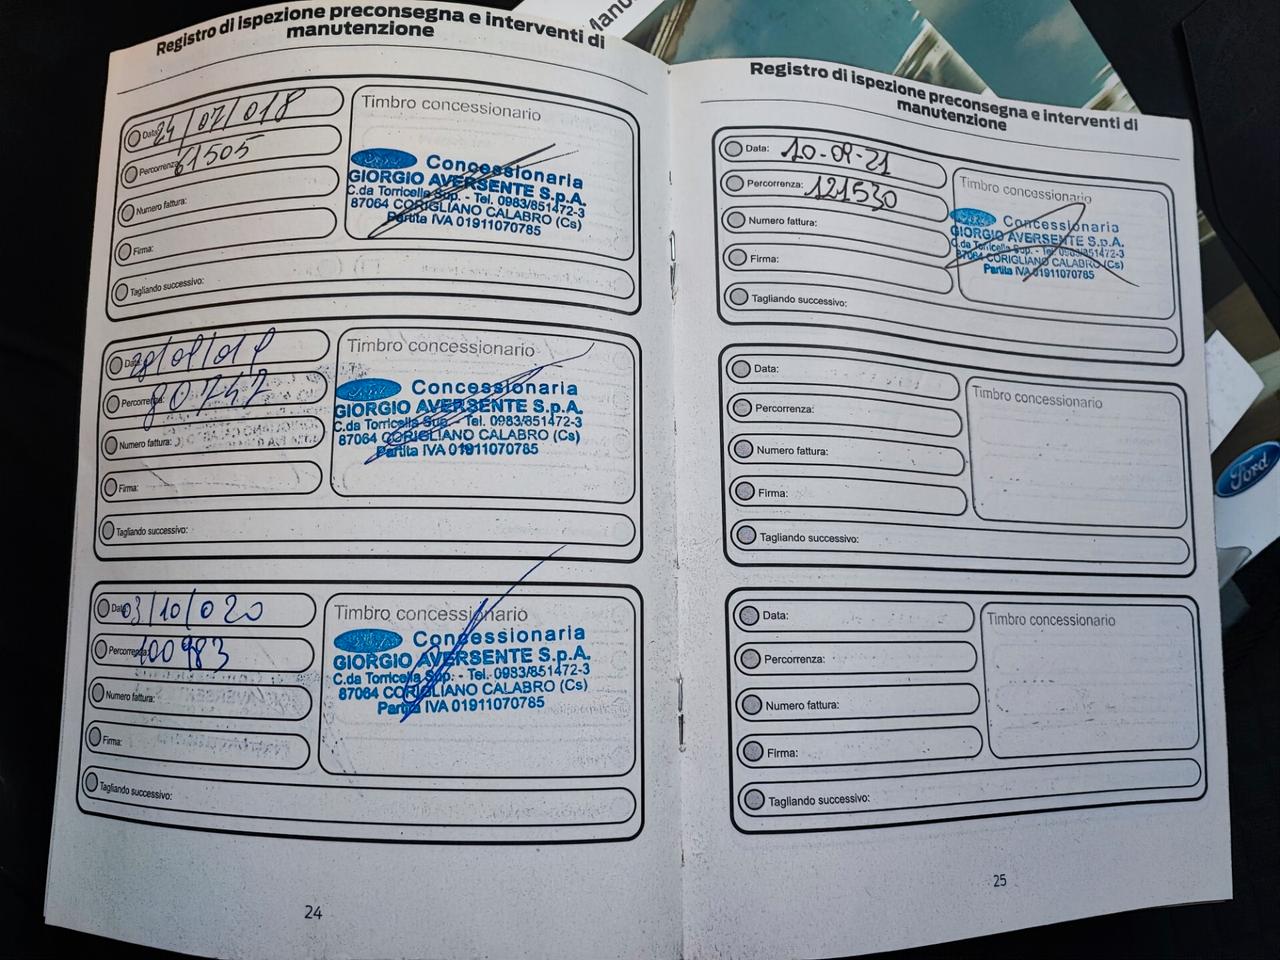 Manu
Registro di ispezione preconsegna e interventi di
manutenzione
Data: 24/07/018
Percorrenza: 61505
Numero fattura:
Firma:
Tagliando successivo:
Timbro concessionario
Concessionaria
GIORGIO AVERSENTE S.p.A.
C.da Torricella Sup. - Tel. 0983/851472-3
87064 CORIGLIANO CALABRO (Cs)
Partita IVA 01911070785
Data:
Percorrenza: 80747
Numero fattura:
Firma:
Tagliando successivo:
Timbro concessionario
Concessionaria
GIORGIO AVERSENTE S.p.A.
C.da Torricella Sup. - Tel. 0983/851472-3
87064 CORIGLIANO CALABRO (Cs)
Partita IVA 01911070785
Data: 03/10/020
Percorrenza: 100983
Numero fattura:
Firma:
Tagliando successivo:
Timbro concessionario
Concessionaria
GIORGIO AVERSENTE S.p.A.
C.da Torricella Sup. - Tel. 0983/851472-3
87064 CORIGLIANO CALABRO (Cs)
Partita IVA 01911070785
24
Registro di ispezione preconsegna e interventi di
manutenzione
Data: 10-09-21
Percorrenza: 121530
Numero fattura:
Firma:
Tagliando successivo:
Timbro concessionario
Concessionaria
GIORGIO AVERSENTE S.p.A.
C.da Torricella Sup. - Tel. 0983/851472-3
87064 CORIGLIANO CALABRO (Cs)
Partita IVA 01911070785
Data:
Percorrenza:
Numero fattura:
Firma:
Tagliando successivo:
Timbro concessionario
Data:
Percorrenza:
Numero fattura:
Firma:
Tagliando successivo:
Timbro concessionario
25
Ford